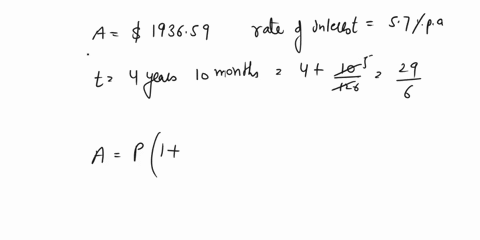 A = $ 1936.59 rate of interest = 5.7 % p.a
t = 4 years 10 months = 4 + 10/12 5/6 = 29/6
A = P ( 1 +